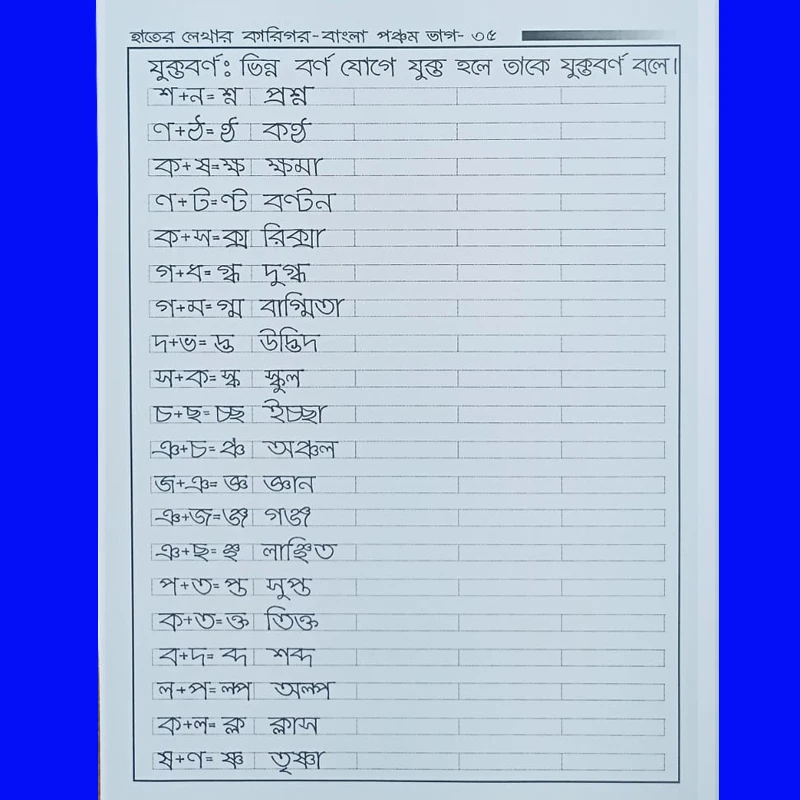 হাতের লেখার কারিগর-বাংলা পঞ্চম ভাগ- ৩৫
যুক্তবর্ণ: ভিন্ন বর্ণ যোগে যুক্ত হলে তাকে যুক্তবর্ণ বলে।
শ+ন= শ্ন প্রশ্ন
ণ+ঠ= ণ্ঠ কণ্ঠ
ক+ষ=ক্ষ ক্ষমা
ণ+ট=ণ্ট বণ্টন
ক+স=ক্স রিক্সা
গ+ধ= গ্ধ দুগ্ধ
গ+ম= গ্ম বাগ্মিতা
দ+ভ= দ্ভ উদ্ভিদ
স+ক= স্ক স্কুল
চ+ছ= চ্ছ ইচ্ছা
ঞ+চ= ঞ্চ অঞ্চল
জ+ঞ= জ্ঞ জ্ঞান
ঞ+জ=ঞ্জ গঞ্জ
ঞ+ছ= ঞ্ছ লাঞ্ছিত
প+ত= প্ত সুপ্ত
ক+ত= ক্ত তিক্ত
ব+দ= ব্দ শব্দ
ল+প= ল্প অল্প
ক+ল= ক্ল ক্লাস
ষ+ণ= ষ্ণ তৃষ্ণা